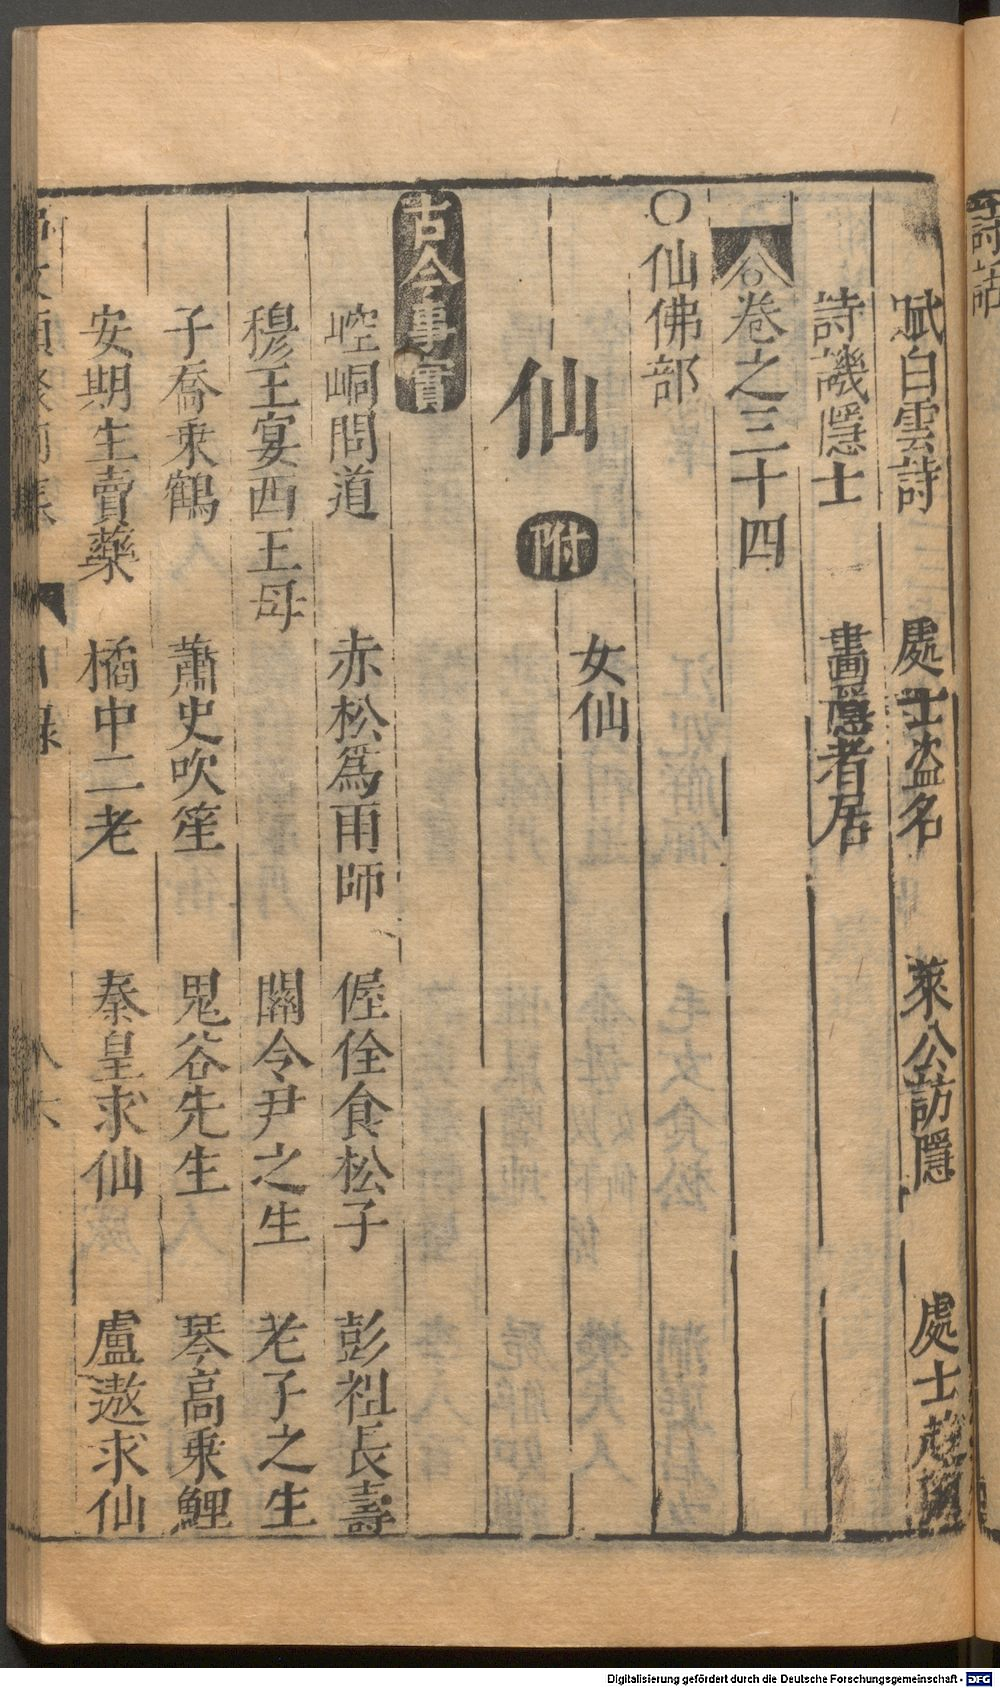 賦白雲詩　處士盗名　萊公訪隱　處士
詩譏隱士　畫隱者居
卷之三十四
〇仙佛部
仙　附　女仙
古今事實
崆峒問道　赤松爲雨師　偓佺食松子　彭祖長壽
穆王宴西王母　關令尹之生　老子之生
子喬乗鶴　蕭史吹笙　鬼谷先生　琴高乗鯉
安期生賣藥　橘中二老　秦皇求仙　盧遨求仙
詩話
Digitalisierung gefördert durch die Deutsche Forschungsgemeinschaft - DFG